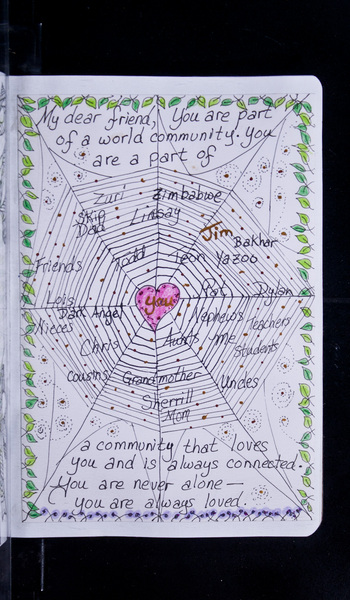 My dear friend, You are part
of a world community. You
are a part of
Zuri Zimbabwe
Skip Lindsay
Dad
Jim
Bakhar
Friends Todd Leon Yazoo
you
Lois Pat Dylan
Dark Angel
Nieces Nephews Teachers
Chris Aunts me Students
Cousins Grandmother Uncles
Sherrill
Mom
a community that loves
you and is always connected.
You are never alone—
you are always loved.